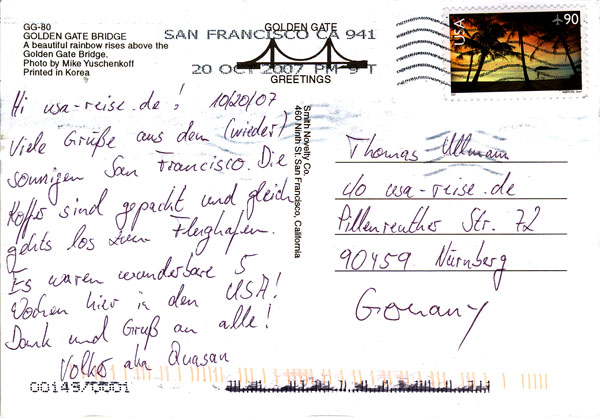 GG-80
GOLDEN GATE BRIDGE
A beautiful rainbow rises above the
Golden Gate Bridge.
Photo by Mike Yuschenkoff
Printed in Korea
SAN FRANCISCO CA 941
20 OCT 2007 PM 9 T
GOLDEN GATE
GREETINGS
USA
90
Hi usa-reise.de! 10/20/07
Viele Grüße aus dem (wieder)
sonnigen San Francisco. Die
Koffer sind gepackt und gleich
gehts los zum Flughafen.
Es waren wunderbare 5
Wochen hier in den USA!
Dank und Gruß an alle!
Volker aka Quasan
Smith Novelty Co.
460 Ninth St. San Francisco, California
Thomas Ullmann
c/o usa-reise.de
Pillenreuther Str. 72
90459 Nürnberg
Germany
00149/0001